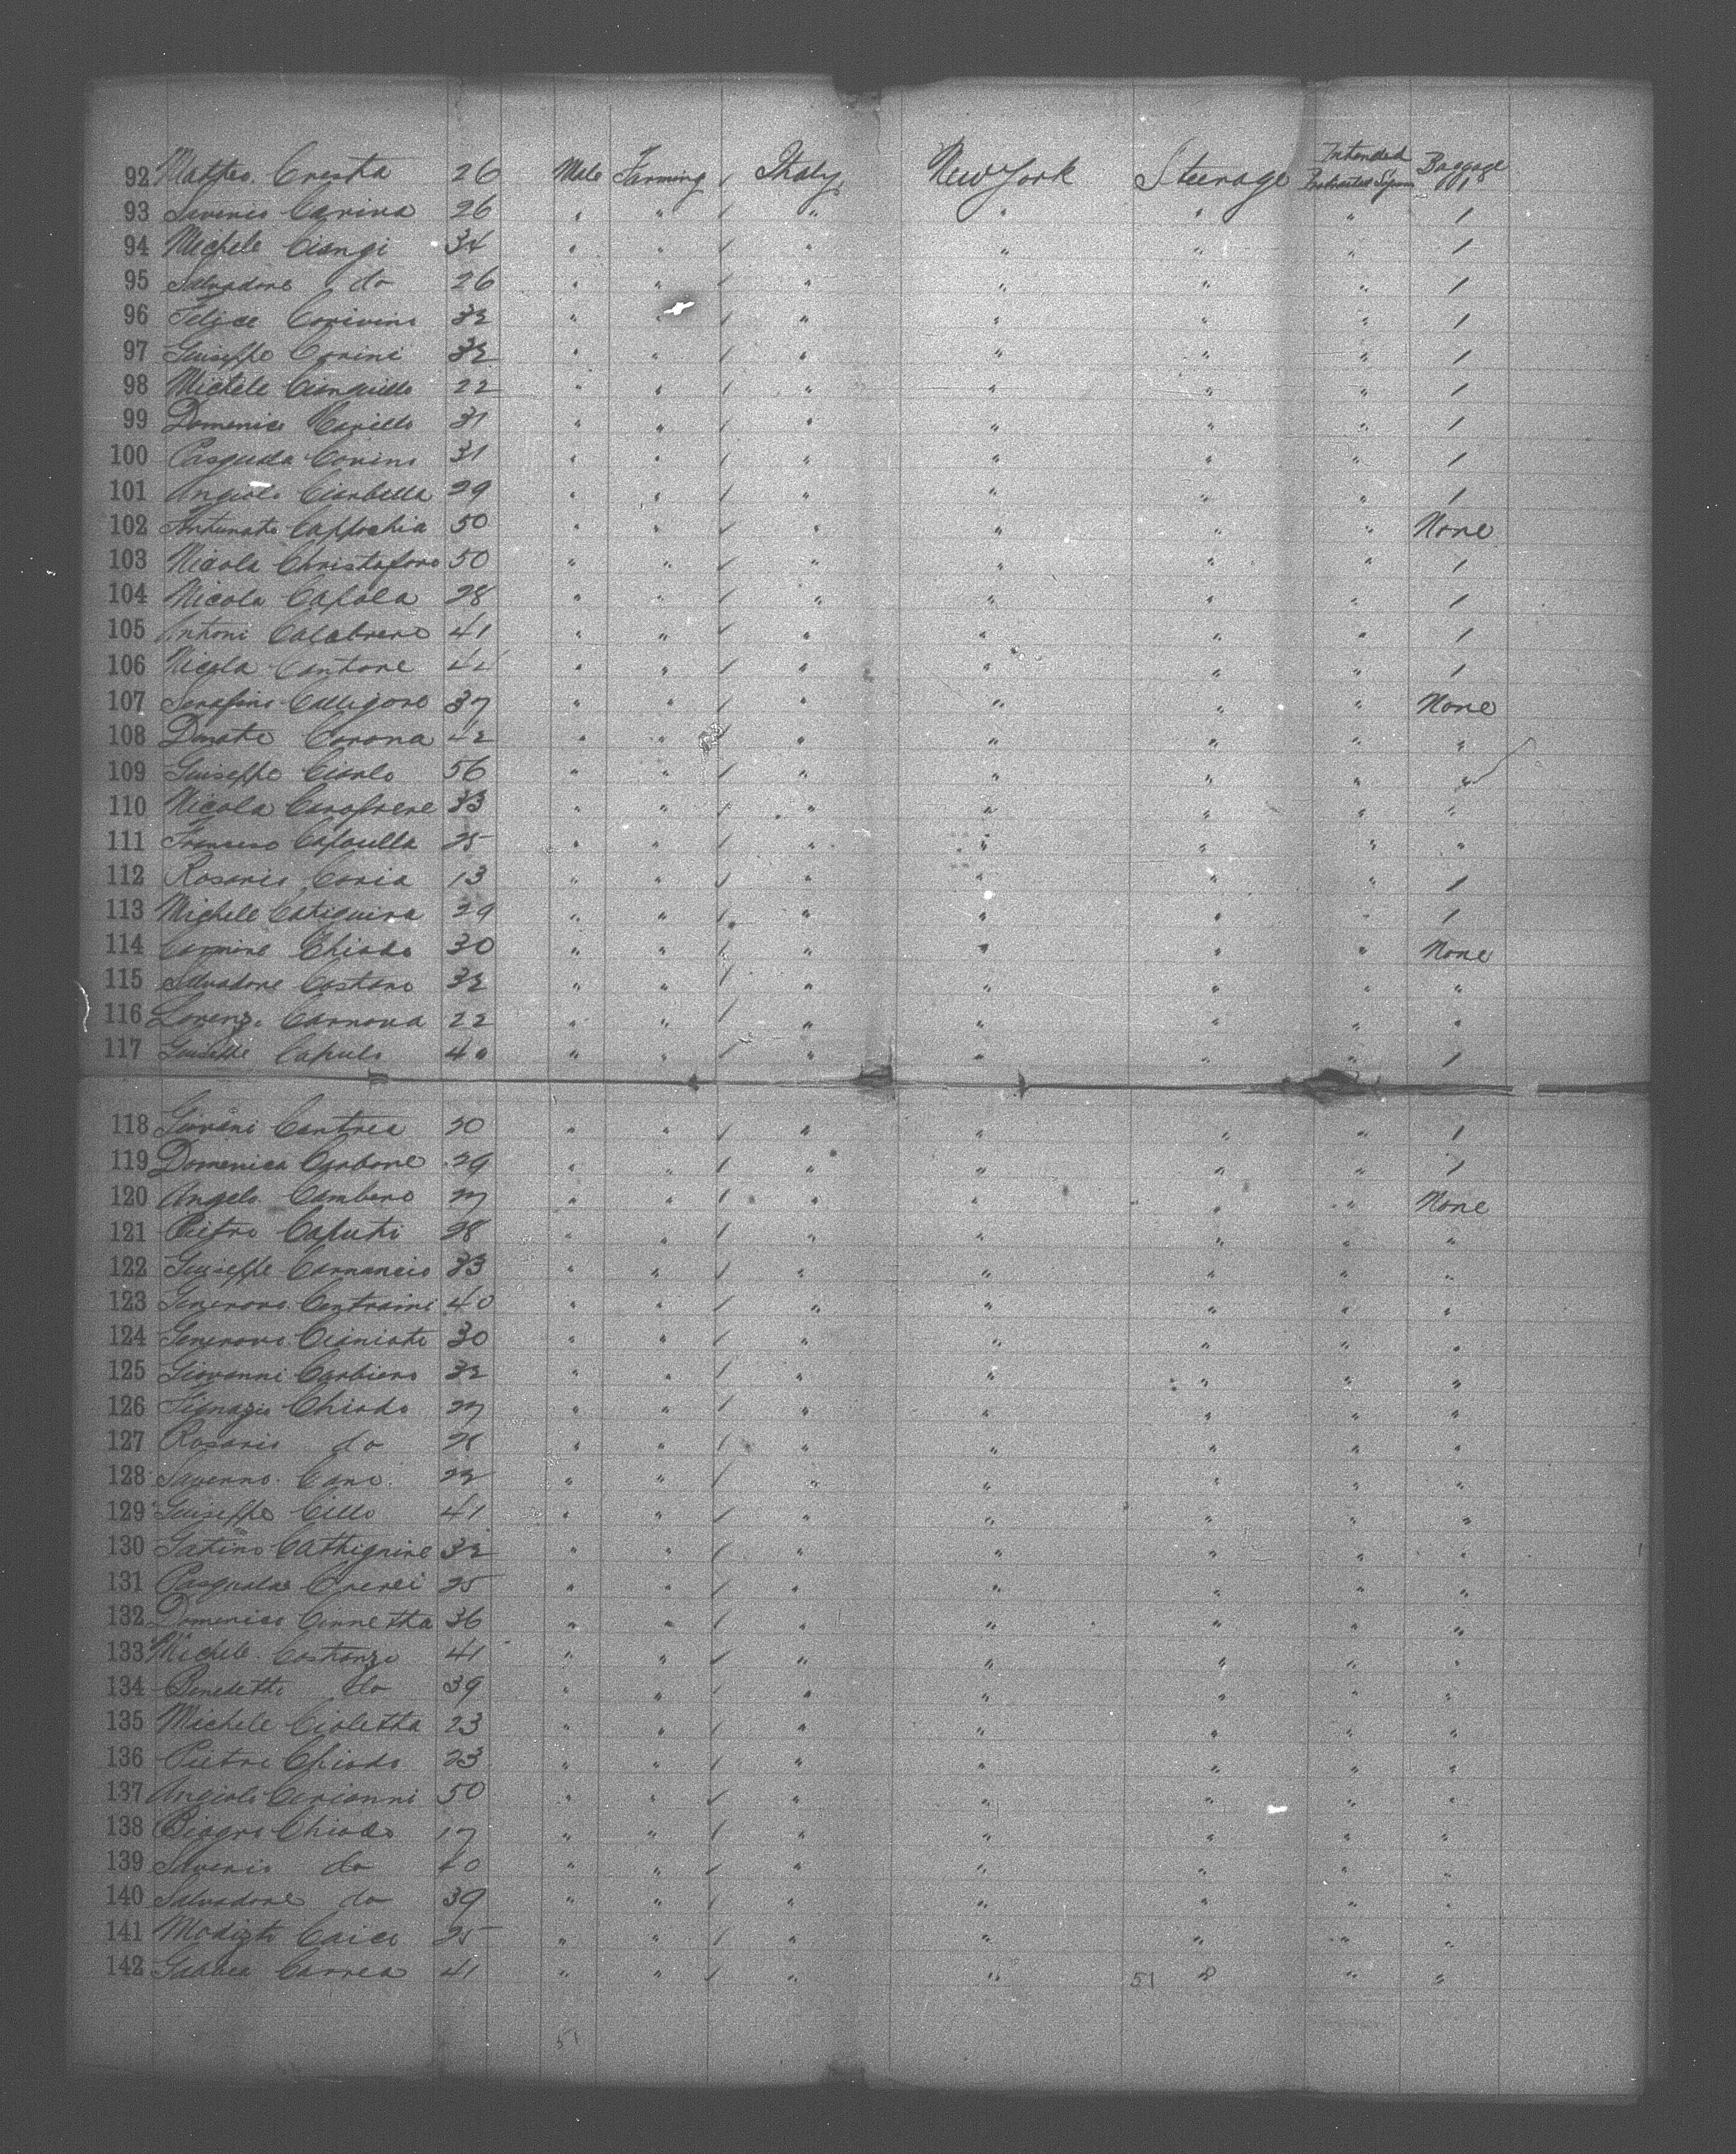 Intended Baggage
92 Matteo Cresta 26 Male Farming / Italy New York Steerage Protracted Sojourn 1
93 Saverio Carina 26 " " / " " " " 1
94 Michele Ciangi 34 " " / " " " " 1
95 Salvadore do 26 " " / " " " " 1
96 Felice Corivini 32 " " / " " " " 1
97 Guiseppe Corini 32 " " / " " " " 1
98 Michele Cianciullo 22 " " / " " " " 1
99 Domenico Carillo 31 " " / " " " " 1
100 Pasquala Covino 31 " " / " " " " 1
101 Angiolo Ciarbella 29 " " / " " " " 1
102 Fortunato Cappochia 50 " " / " " " " None
103 Nicola Christoforo 50 " " / " " " " 1
104 Nicola Capola 28 " " / " " " " 1
105 Antoni Calabrero 41 " " / " " " " 1
106 Nicola Cantone 44 " " / " " " " 1
107 Serafino Calligore 37 " " / " " " " None
108 Donato Corona 42 " " / " " " " "
109 Guiseppe Ciarlo 56 " " / " " " " "
110 Nicola 33 " " / " " " " "
111 Francisco Capouilla 25 " " / " " " " "
112 Rosario Coria 13 " " / " " " " 1
113 Michele Catiquira 29 " " / " " " " 1
114 Carmine Chiodo 30 " " / " " " " None
115 Salvadore Castano 32 " " / " " " " "
116 Lorenzo Carnova 22 " " / " " " " "
117 Guiseppe Capulo 40 " " / " " " " 1
118 Giovani Cantrea 20 " " / " " " " 1
119 Domenica Carbone 29 " " / " " " " 1
120 Angelo Cambero 27 " " / " " " " None
121 Pietro Caputi 28 " " / " " " " "
122 Guiseppe Carmancio 33 " " / " " " " "
123 Generoro Centraini 40 " " / " " " " "
124 Generoro Cianiato 30 " " / " " " " "
125 Giovanni Carbiero 32 " " / " " " " "
126 Chiodo 27 " " / " " " " "
127 Rosario do 28 " " / " " " " "
128 Saverno Cano 22 " " / " " " " "
129 Guiseppe Cillo 41 " " / " " " " "
130 Gatino Cathignine 32 " " / " " " " "
131 Pasquale Crerei 25 " " / " " " " "
132 Domenico Cinnetta 36 " " / " " " " "
133 Michele Costanzo 41 " " / " " " " "
134 Benedetto do 39 " " / " " " " "
135 Michele Cioletta 23 " " / " " " " "
136 Pietro Chiodo 23 " " / " " " " "
137 Angiolo Cirianni 50 " " / " " " " "
138 Biagro Chiodo 17 " " / " " " " "
139 Saverio do 40 " " / " " " " "
140 Salvadore do 39 " " / " " " " "
141 Modizto Caico 25 " " / " " " " "
142 Carrea 41 " " / " " 51 " " "
51